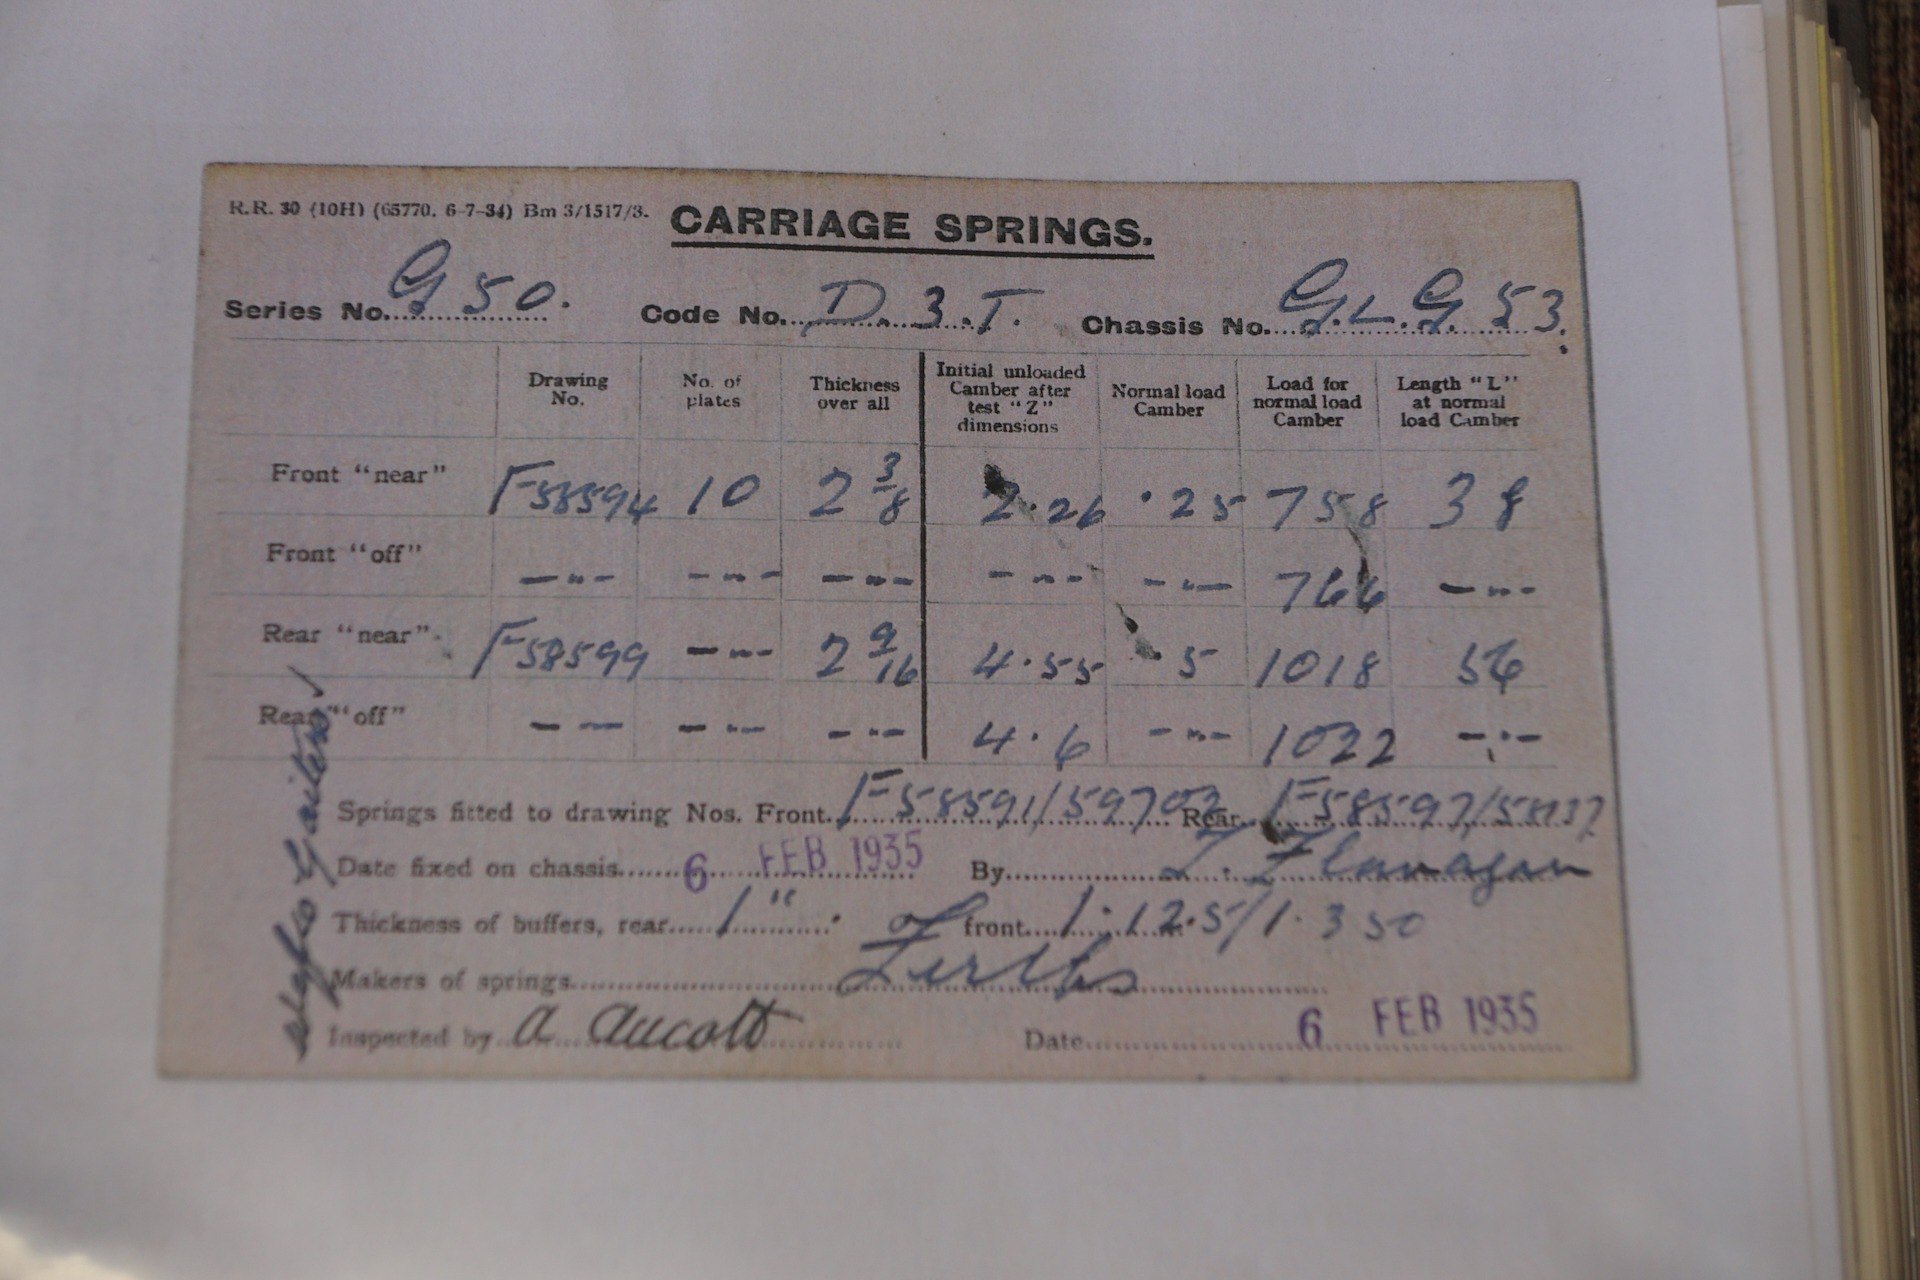 R.R. 30 (10H) (65770. 6-7-34) Bm 3/1517/3. CARRIAGE SPRINGS.
Series No. G 50. Code No. D.3.T. Chassis No. G.L.G. 53.
Drawing No. No. of plates Thickness over all Initial unloaded Camber after test "Z" dimensions Normal load Camber Load for normal load Camber Length "L" at normal load Camber
Front "near" F58594 10 2 3/8 2.26 .25 758 38
Front "off" - " - - " - - " - - " - - " - 766 - " -
Rear "near" F58599 - " - 2 9/16 4.55 .5 1018 56
Rear "off" - - - " - - " - 4.6 - " - 1022 - " -
Springs fitted to drawing Nos. Front F58591/59703 Rear F58597/
Date fixed on chassis 6 FEB 1935 By Flanagan
Thickness of buffers, rear 1" front 1.125/1.350
Makers of springs Firths
Inspected by A Aucott Date 6 FEB 1935
Gaiters